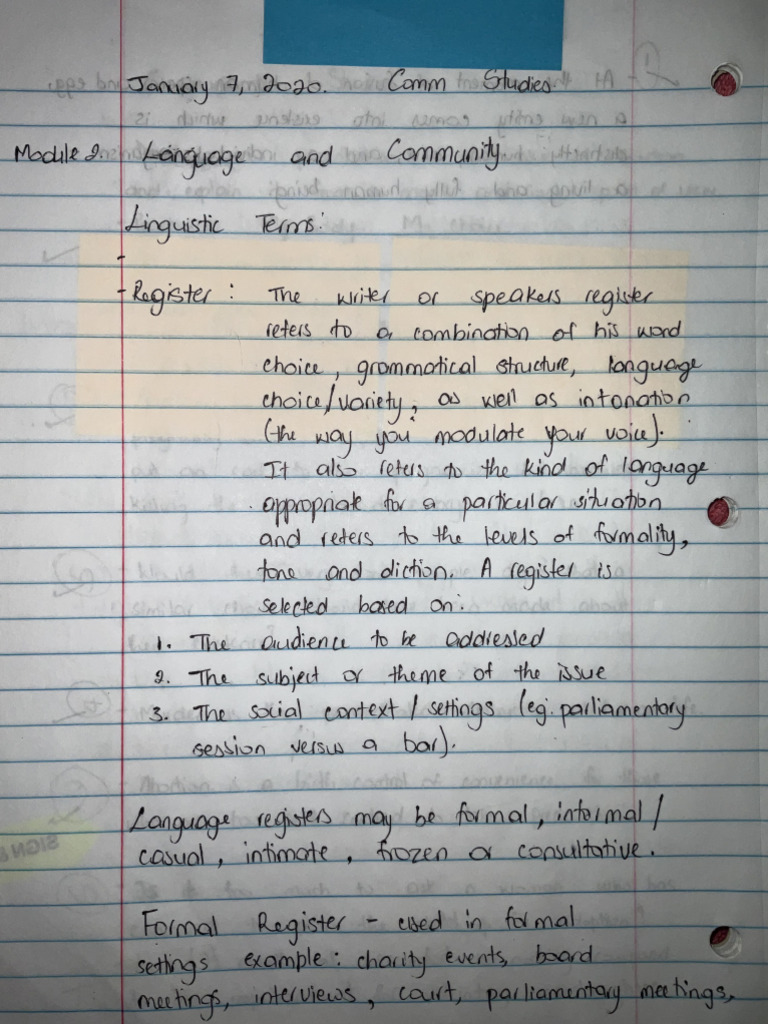 January 7, 2020. Comm Studies.
Module 2. Language and Community
Linguistic Terms:
-
- Register : The writer or speakers register
refers to a combination of his word
choice, grammatical structure, language
choice/variety, as well as intonation
(the way you modulate your voice).
It also refers to the kind of language
appropriate for a particular situation
and refers to the levels of formality,
tone and diction. A register is
selected based on:
1. The audience to be addressed
2. The subject or theme of the issue
3. The social context / settings (eg. parliamentary
session versus a bar).
Language registers may be formal, informal /
casual, intimate, frozen or consultative.
Formal Register - used in formal
settings example: charity events, board
meetings, interviews, court, parliamentary meetings,